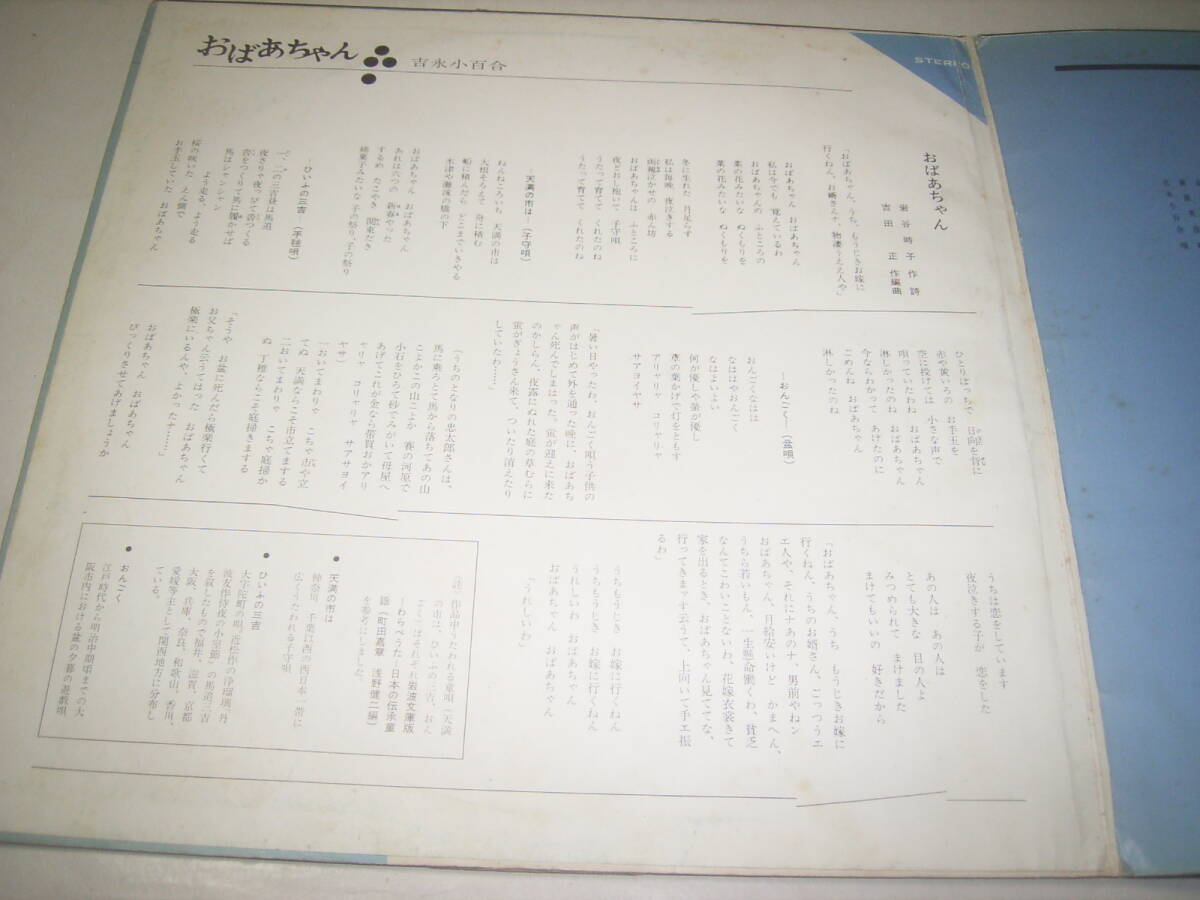 おばあちゃん
吉永小百合
STEREO
おばあちゃん
岩谷時子 作詩
吉田 正 作編曲
「おばあちゃん、うち、もうじきお嫁に
行くねん、お婿さんナ、物凄うええ人や」
おばあちゃん おばあちゃん
私は今でも 覚えているわ
おばあちゃんの ふところの
菜の花みたいな ぬくもりを
菜の花みたいな ぬくもりを
冬に生れた 月足らず
私は毎晩 夜泣きする
両親泣かせの 赤ん坊
おばあちゃんは ふところに
夜どおし抱いて 子守唄
うたって育てて くれたのね
うたって育てて くれたのね
―天満の市は―(子守唄)
ねんねころいち 天満の市は
大根そろえて 舟に積む
船に積んだら どこまでいきやる
木津や難波の橋の下
おばあちゃん おばあちゃん
あれは六つの 新春やった
するめ たこやき 関東だき
綿菓子みたいな 子の祭り、子の祭り
―ひいふの三吉―(手毬唄)
一、二の三吉昼は馬追
夜さりゃ夜っぴて沓つくる
沓をつくりて馬に履かせば
馬はシャンシャン
よう走る、よう走る
桜の咲いた えん側で
お手玉していた おばあちゃん
ひとりぼっちで 日向を背に
赤や黄いろの お手玉を
空に投げては 小さな声で
唄っていたわね おばあちゃん
淋しかったのね おばあちゃん
今ならわかって あげたのに
ごめんね おばあちゃん
淋しかったのね
―おんごく―(盆唄)
おんごくなはは
なははやおんごく
なはよいよい
何が優しや螢が優し
草の葉かげで灯をともす
アリャリャ コリャリャ
サアヨイヤサ
「暑い日やったわ、おんごく唄う子供の
声がはじめて外を通った晩に、おばあち
ゃん死んでしまはった。螢が迎えに来た
のかしらん、夜露にぬれた庭の草むらに
螢がぎょうさん来て、ついたり消えたり
していたわ……」
(うちのとなりの忠太郎さんは、
馬に乗ろとて馬から落ちてあの山
こよかこの山こよか 賽の河原で
小石をひろて砂でみがいて母屋へ
あげてこれが金なら帯買おかアリ
ャリャ コリャリャ サアサヨイ
ヤサ)
一おいてまわりゃ こちゃ市や立
てぬ 天満ならこそ市立てまする
二おいてまわりゃ こちゃ庭掃か
ぬ 丁稚ならこそ庭掃きまする
「そうや お盆に死んだら極楽行くて
お父ちゃん云うてはった おばあちゃん
極楽にいるんや、よかったナ……」
おばあちゃん おばあちゃん
びっくりさせてあげましょうか
うちは恋をしています
夜泣きする子が 恋をした
あの人は あの人は
とても大きな 目の人よ
みつめられて まけました
まけてもいいの 好きだから
「おばあちゃん、うち もうじきお嫁に
行くねん、うちのお婿さん、ごっつうエ
エ人や、それにナあのナ、男前やねン
おばあちゃん、月給安いけど かまへん、
うちら若いもん、一生懸命働くわ、貧乏
なんてこわいことないわ、花嫁衣裳きて
家を出るとき、おばあちゃん見ててな、
行ってきまッす云うて、上向いて手エ振
るわ」
うちもうじき お嫁に行くねん
うちもうじき お嫁に行くねん
うれしいわ おばあちゃん
おばあちゃん おばあちゃん
「うれしいわ」
(注)作品中うたわれる童唄(天満
の市は、ひいふの三吉、おん
ごく)はそれぞれ岩波文庫版
―わらべうた―日本の伝承童
謡(町田嘉章 浅野健二編)
を参考にしました。
● 天満の市は
神奈川、千葉以西の西日本一帯に
広くうたわれる子守唄
● ひいふの三吉
大宇陀町の唄。近松作の浄瑠璃、丹
波与作待夜の小室節」の馬追三吉
を叙したもので福井、滋賀、京都
大阪、兵庫、奈良、和歌山、香川、
愛媛等主として関西地方に分布し
ている。
● おんごく
江戸時代から明治中期頃までの大
阪市内における盆の夕暮の遊戯唄